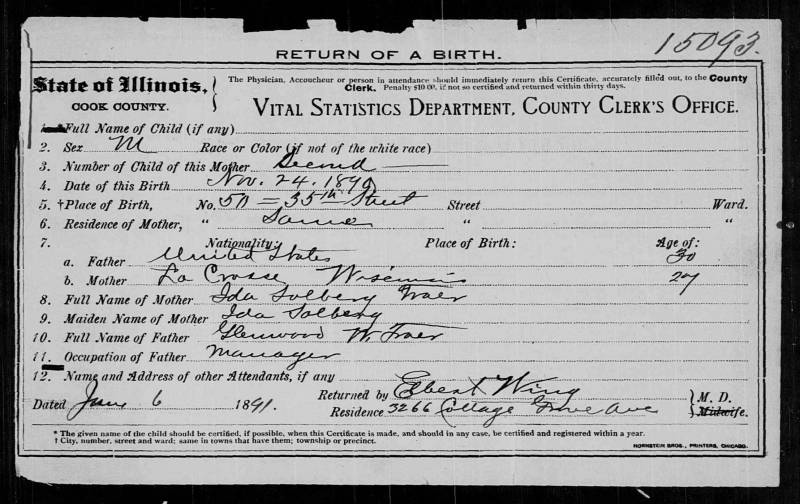 15093.
RETURN OF A BIRTH.
State of Illinois,
COOK COUNTY.
The Physician, Accoucheur or person in attendance should immediately return this Certificate, accurately filled out, to the County
Clerk. Penalty $10 00, if not so certified and returned within thirty days.
VITAL STATISTICS DEPARTMENT, COUNTY CLERK'S OFFICE.
1. Full Name of Child (if any)
2. Sex M Race or Color (if not of the white race)
3. Number of Child of this Mother Second
4. Date of this Birth Nov. 24. 1890
5. †Place of Birth, No. 50 = 35th Street Street Ward.
6. Residence of Mother, " Same " "
7. Nationality: Place of Birth: Age of:
a. Father United States 30
b. Mother La Crosse Wisconsin 27
8. Full Name of Mother Ida Solberg Traer
9. Maiden Name of Mother Ida Solberg
10. Full Name of Father Glenwood W. Traer
11. Occupation of Father Manager
12. Name and Address of other Attendants, if any
Returned by Elbert Wing M. D.
Dated Jany 6 1891. Residence 3266 Cottage Grove Ave Midwife.
* The given name of the child should be certified, if possible, when this Certificate is made, and should in any case, be certified and registered within a year.
† City, number, street and ward; same in towns that have them; township or precinct.
HORNSTEIN BROS., PRINTERS, CHICAGO.